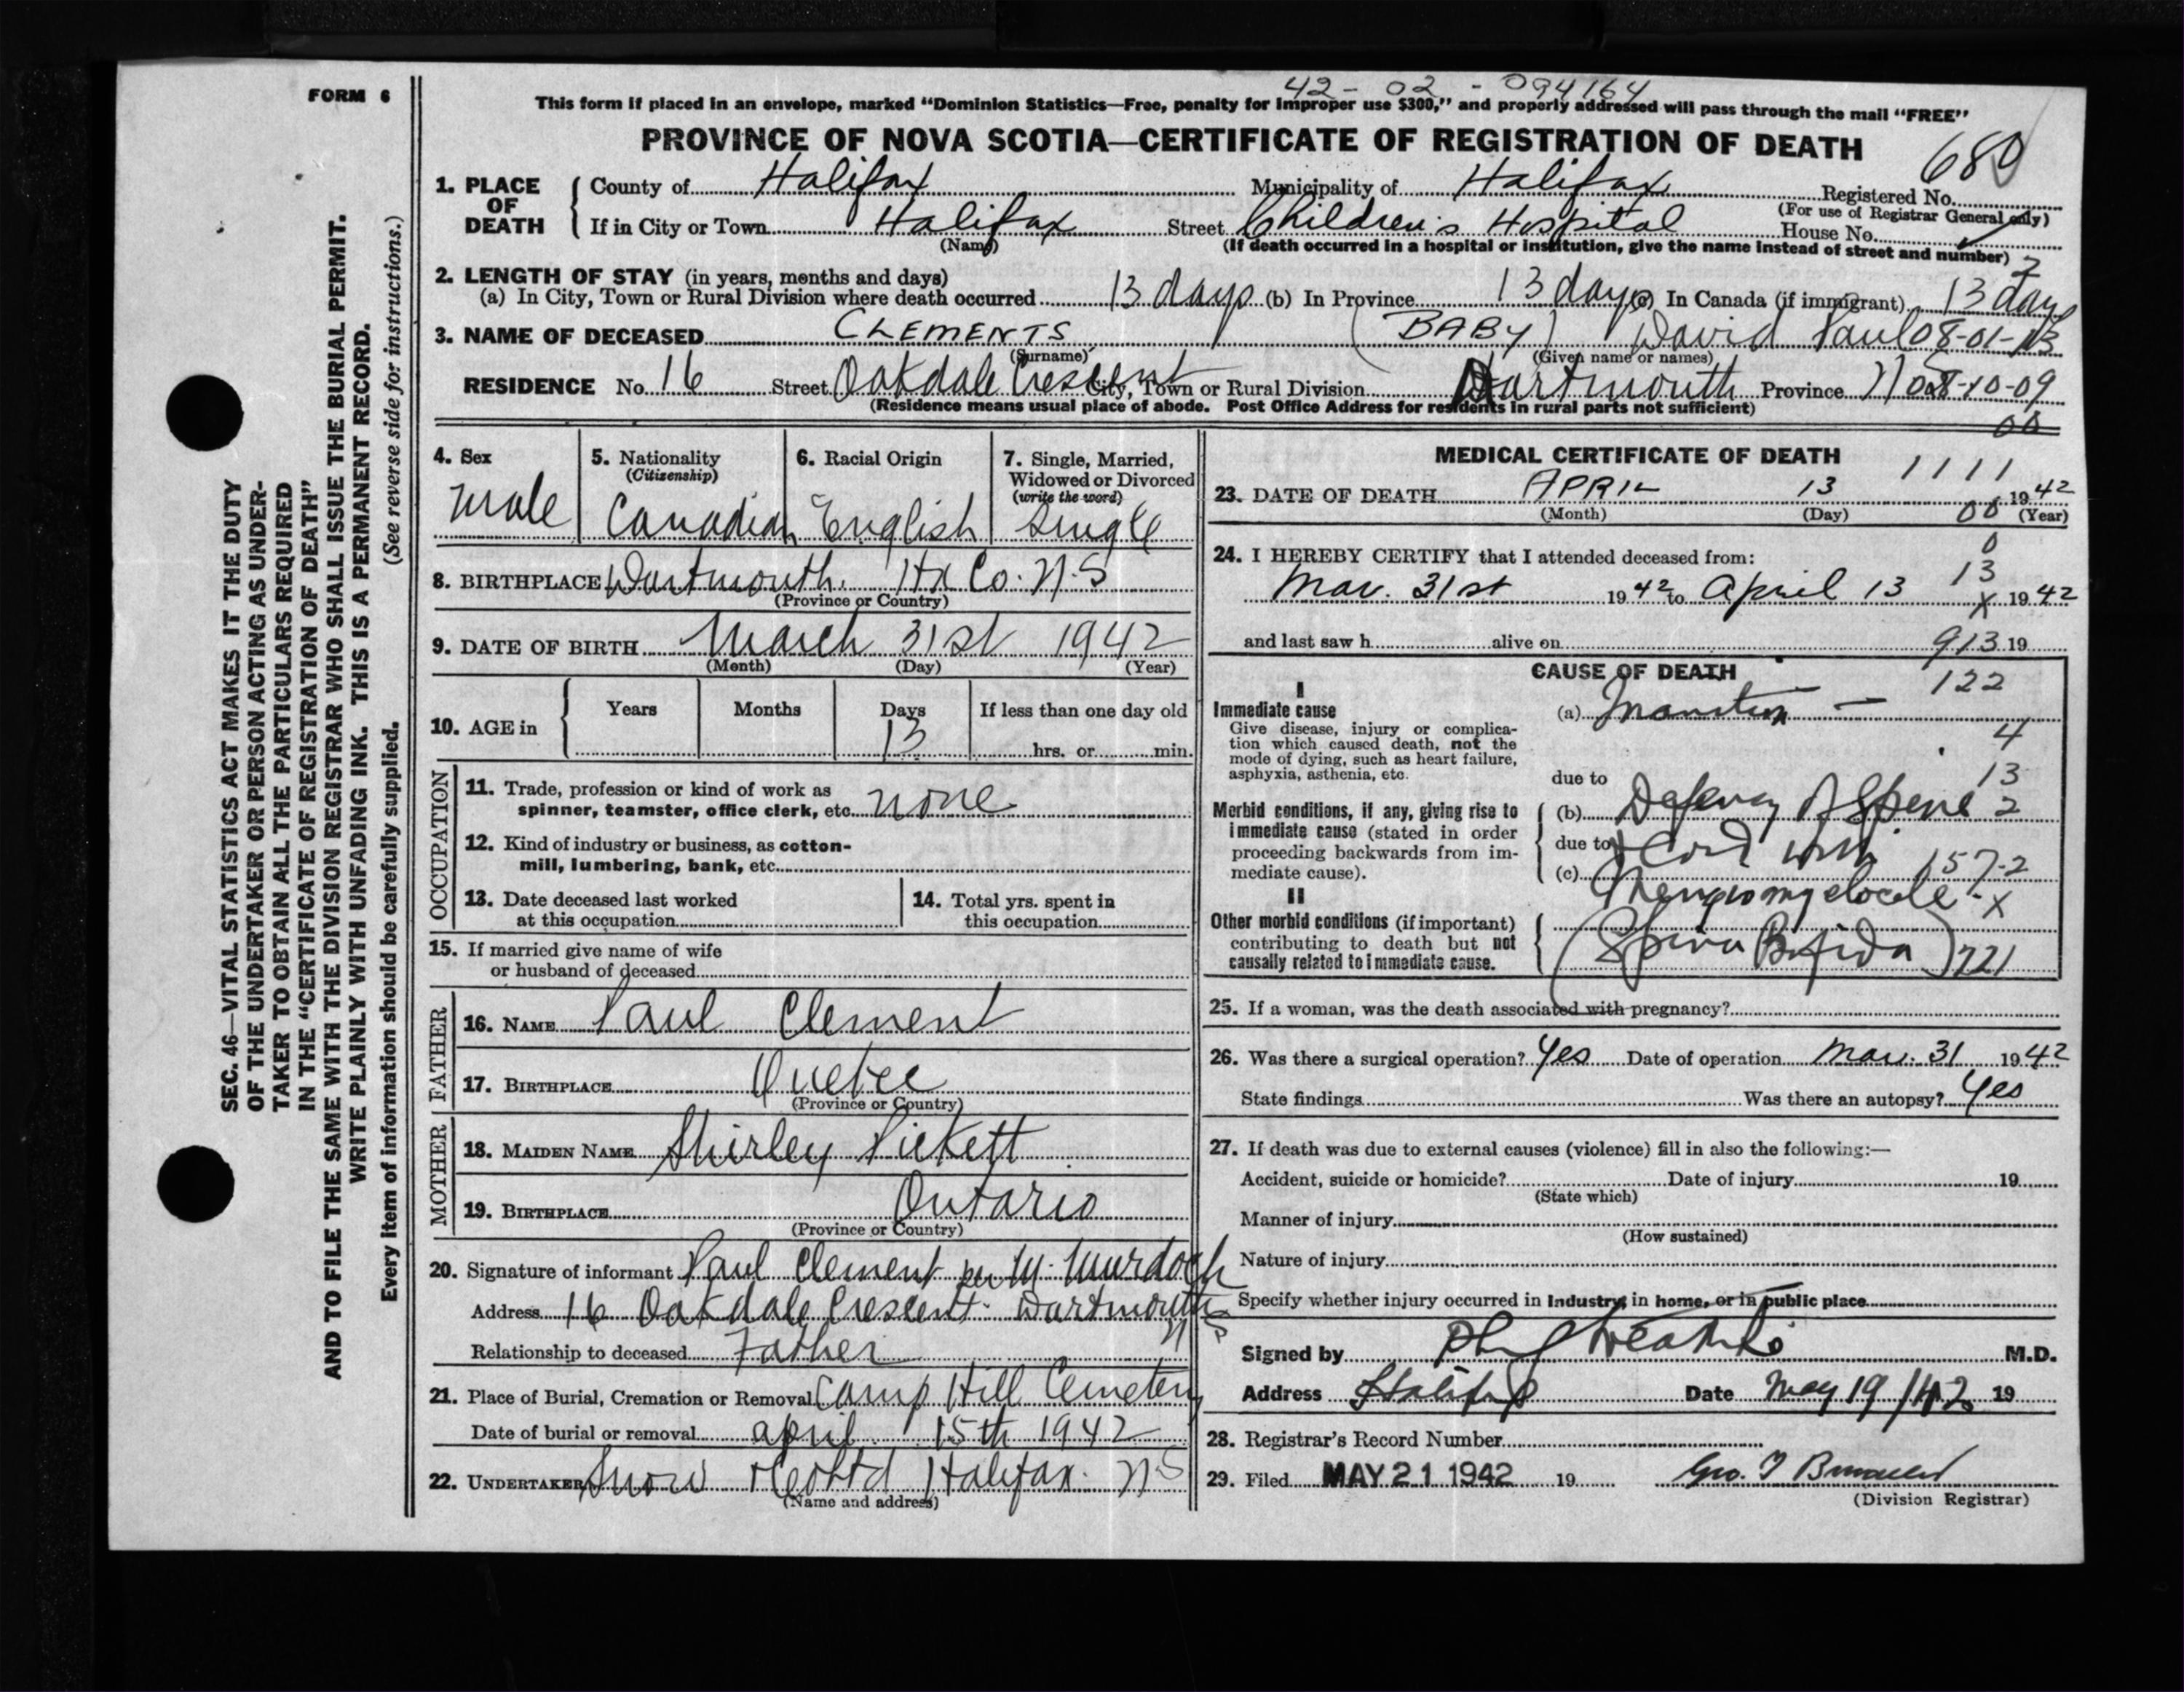 FORM 6
42-02-094164
This form if placed in an envelope, marked "Dominion Statistics—Free, penalty for improper use $300," and properly addressed will pass through the mail "FREE"
PROVINCE OF NOVA SCOTIA—CERTIFICATE OF REGISTRATION OF DEATH
680
1. PLACE OF DEATH County of Halifax Municipality of Halifax Registered No.
(For use of Registrar General only)
If in City or Town Halifax Street Children's Hospital House No.
(Name) (If death occurred in a hospital or institution, give the name instead of street and number)
2. LENGTH OF STAY (in years, months and days)
(a) In City, Town or Rural Division where death occurred 13 days (b) In Province 13 days (c) In Canada (if immigrant) 13 days
3. NAME OF DECEASED CLEMENTS (BABY) David Paul 08-01-13
(Surname) (Given name or names)
RESIDENCE No. 16 Street Oakdale Crescent City, Town or Rural Division Dartmouth Province 08-10-09
(Residence means usual place of abode. Post Office Address for residents in rural parts not sufficient)
00
4. Sex Male
5. Nationality (Citizenship) Canadian
6. Racial Origin English
7. Single, Married, Widowed or Divorced (write the word) Single
8. BIRTHPLACE Dartmouth. Hx Co. N.S
(Province or Country)
9. DATE OF BIRTH March 31st 1942
(Month) (Day) (Year)
10. AGE in Years Months Days If less than one day old
13 hrs. or min.
OCCUPATION
11. Trade, profession or kind of work as spinner, teamster, office clerk, etc. none
12. Kind of industry or business, as cotton-mill, lumbering, bank, etc.
13. Date deceased last worked at this occupation
14. Total yrs. spent in this occupation
15. If married give name of wife or husband of deceased
FATHER
16. NAME Paul Clement
17. BIRTHPLACE Quebec
(Province or Country)
MOTHER
18. MAIDEN NAME Shirley Pickett
19. BIRTHPLACE Ontario
(Province or Country)
20. Signature of informant Paul Clement per M. Murdoch
Address 16 Oakdale Crescent Dartmouth NS
Relationship to deceased Father
21. Place of Burial, Cremation or Removal Camp Hill Cemetery
Date of burial or removal april 15th 1942
22. UNDERTAKER Snow & Co Ltd Halifax. N.S
(Name and address)
MEDICAL CERTIFICATE OF DEATH
1111
23. DATE OF DEATH APRIL 13 1942
(Month) (Day) (Year)
00
24. I HEREBY CERTIFY that I attended deceased from:
0
13
Mar. 31st 1942 to April 13 1942
X
and last saw h alive on 913 19
CAUSE OF DEATH
122
I
Immediate cause
Give disease, injury or complication which caused death, not the mode of dying, such as heart failure, asphyxia, asthenia, etc.
(a) Inanition —
4
due to 13
Morbid conditions, if any, giving rise to immediate cause (stated in order proceeding backwards from immediate cause).
(b) of Spine 2
due to & Cord with
(c) 157-2
Meningomyelocele - X
II
Other morbid conditions (if important) contributing to death but not causally related to immediate cause.
(Spina Bifida) 721
25. If a woman, was the death associated with pregnancy?
26. Was there a surgical operation? Yes Date of operation Mar. 31 1942
State findings Was there an autopsy? Yes
27. If death was due to external causes (violence) fill in also the following:—
Accident, suicide or homicide? Date of injury 19
(State which)
Manner of injury
(How sustained)
Nature of injury
Specify whether injury occurred in Industry, in home, or in public place
Signed by M.D.
Address Halifax Date May 19/42 19
28. Registrar's Record Number
29. Filed MAY 21 1942 19 Geo.
(Division Registrar)
SEC. 46—VITAL STATISTICS ACT MAKES IT THE DUTY
OF THE UNDERTAKER OR PERSON ACTING AS UNDER-
TAKER TO OBTAIN ALL THE PARTICULARS REQUIRED
IN THE "CERTIFICATE OF REGISTRATION OF DEATH"
AND TO FILE THE SAME WITH THE DIVISION REGISTRAR WHO SHALL ISSUE THE BURIAL PERMIT.
WRITE PLAINLY WITH UNFADING INK. THIS IS A PERMANENT RECORD.
Every item of information should be carefully supplied. (See reverse side for instructions.)